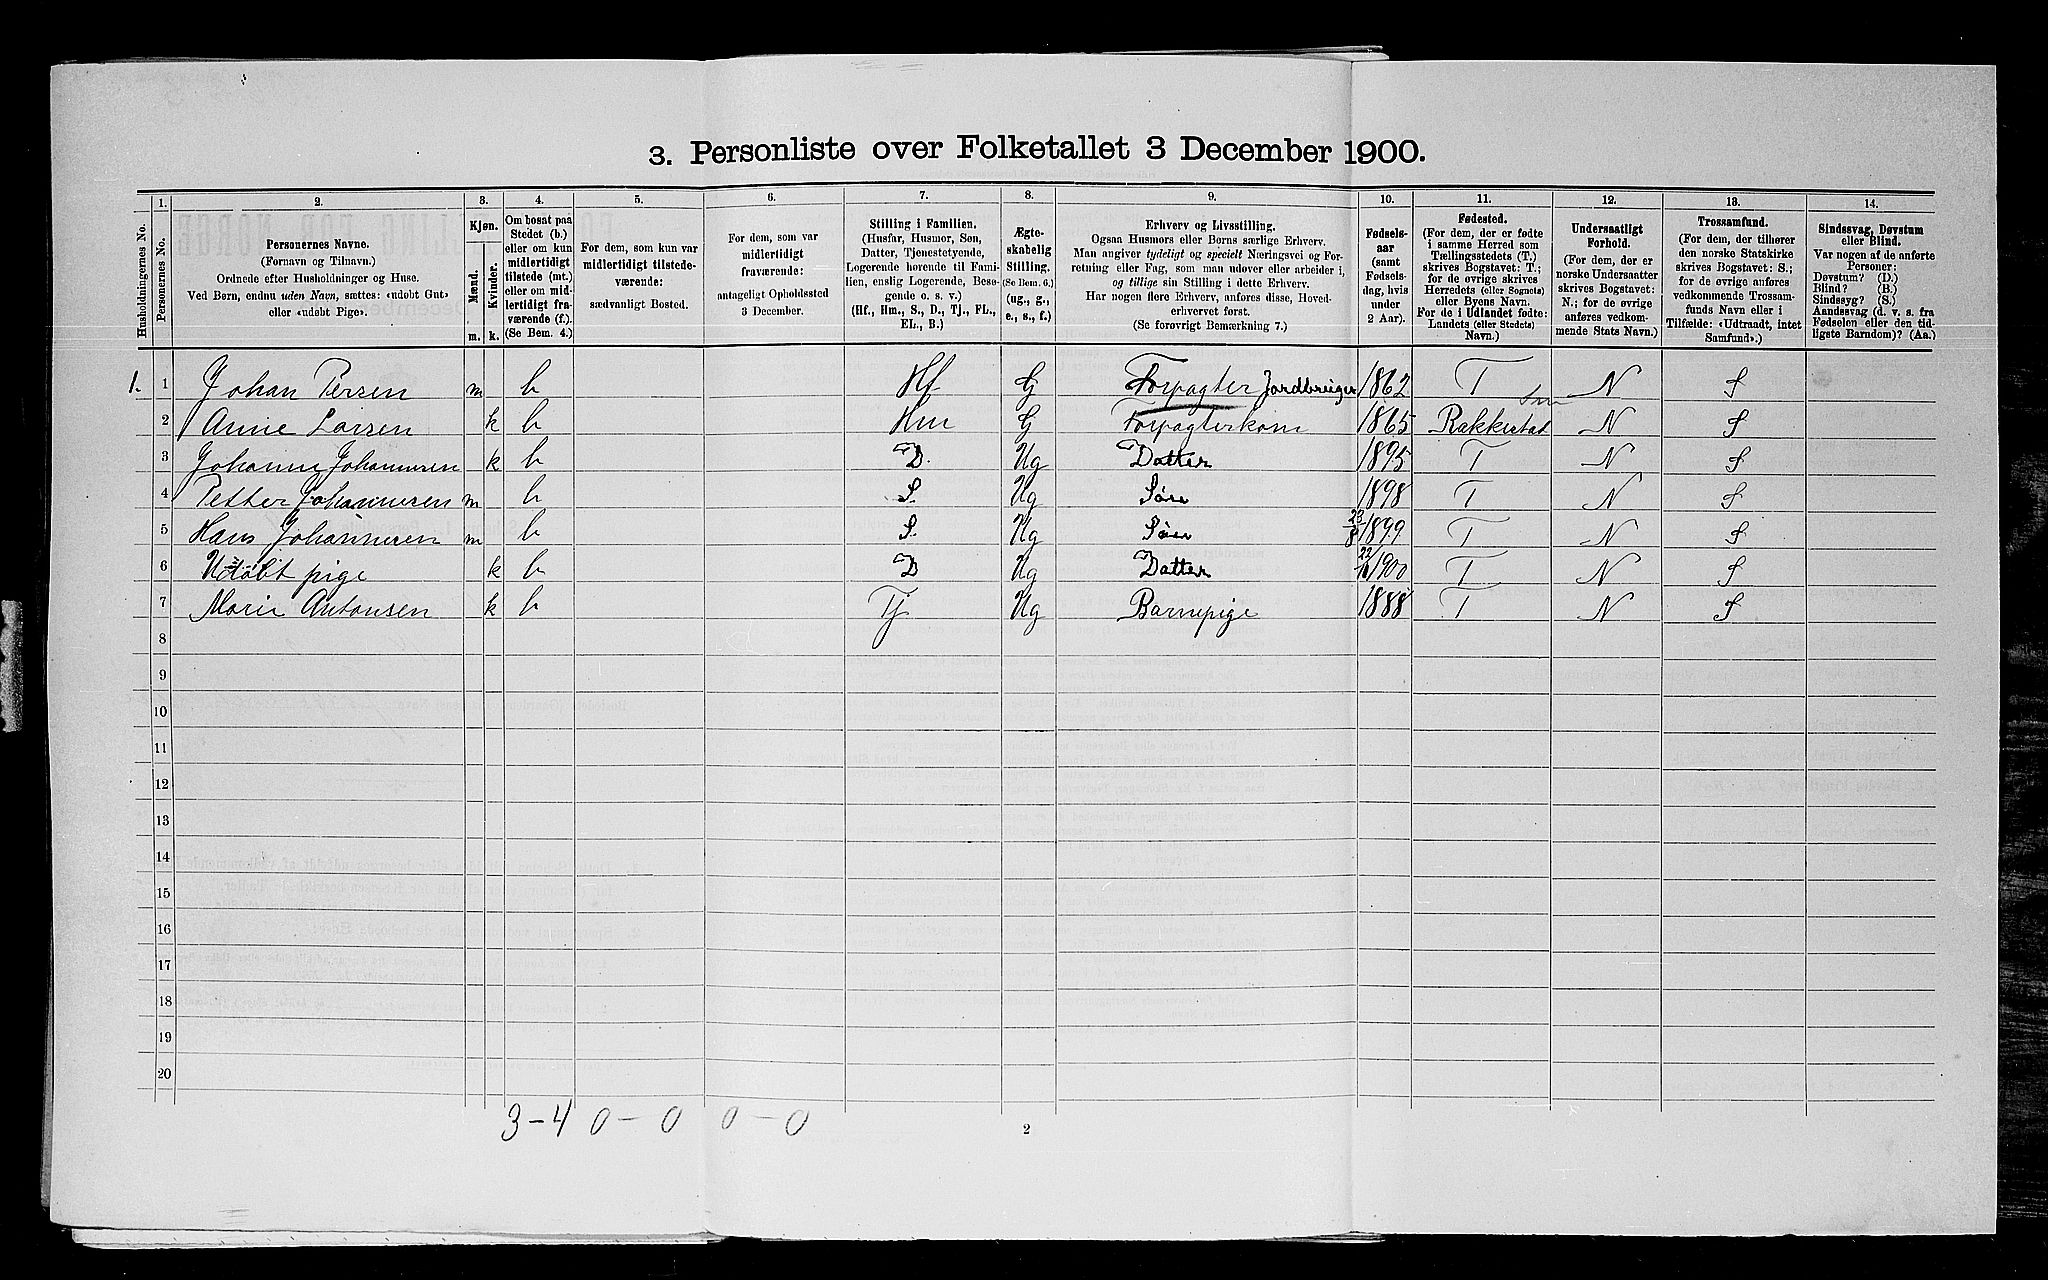 3. Personliste over Folketallet 3 December 1900.
1. 2. 3. 4. 5. 6. 7. 8. 9. 10. 11. 12. 13. 14.
Husholdningernes No.
Personernes No.
Personernes Navne.
(Fornavn og Tilnavn.)
Ordnede efter Husholdninger og Huse.
Ved Børn, endnu uden Navn, sættes: «udøbt Gut»
eller «udøbt Pige».
Kjøn.
Mænd.
Kvinder.
m. k.
Om bosat paa
Stedet (b.)
eller om kun
midlertidigt
tilstede (mt.)
eller om mid-
lertidigt fra-
værende (f.).
(Se Bem. 4.)
For dem, som kun var
midlertidigt tilstede-
værende:
sædvanligt Bosted.
For dem, som var
midlertidigt
fraværende:
antageligt Opholdssted
3 December.
Stilling i Familien.
(Husfar, Husmor, Søn,
Datter, Tjenestetyende,
Logerende hørende til Fami-
lien, enslig Logerende, Besø-
gende o. s. v.)
(Hf., Hm., S., D., Tj., FL.,
EL., B.)
Ægte-
skabelig
Stilling.
(Se Bem. 6.)
(ug., g.,
e., s., f.)
Erhverv og Livsstilling.
Ogsaa Husmors eller Børns særlige Erhverv.
Man angiver tydeligt og specielt Næringsvei og For-
retning eller Fag, som man udøver eller arbeider i,
og tillige sin Stilling i dette Erhverv.
Har nogen flere Erhverv, anføres disse, Hoved-
erhvervet først.
(Se forøvrigt Bemærkning 7.)
Fødsels-
aar
(samt
Fødsels-
dag, hvis
under
2 Aar).
Fødested.
(For dem, der er fødte
i samme Herred som
Tællingsstedets (T.)
skrives Bogstavet: T.;
for de øvrige skrives
Herredets (eller Sognets)
eller Byens Navn.
For de i Udlandet fødte:
Landets (eller Stedets)
Navn.)
Undersaatligt
Forhold.
(For dem, der er
norske Undersaatter
skrives Bogstavet:
N.; for de øvrige
anføres vedkom-
mende Stats Navn.)
Trossamfund.
(For dem, der tilhører
den norske Statskirke
skrives Bogstavet: S.;
for de øvrige anføres
vedkommende Trossam-
funds Navn eller i
Tilfælde: «Udtraadt, intet
Samfund».)
Sindssvag, Døvstum
eller Blind.
Var nogen af de anførte
Personer:
Døvstum? (D.)
Blind? (B.)
Sindssyg? (S.)
Aandssvag (d. v. s. fra
Fødselen eller den tid-
ligste Barndom)? (Aa.)
1. 1 Johan Persen m b Hf G Forpagter Jordbruger 1862 T N S
2 Anne Larsen k b Hm G Forpagterkone 1865 Rakkestad Smn N S
3 Johanne Johannesen k b D. Ug Datter 1895 T N S
4 Petter Johannesen m b S. Ug Søn 1898 T N S
5 Hans Johannesen m b S. Ug Søn 23/8 1899 T N S
6 Udøbt pige k b D Ug Datter 22/10 1900 T N S
7 Marie Antonsen k b Tj Ug Barnepige 1888 T N S
8
9
10
11
12
13
14
15
16
17
18
19
20
3-4 0-0 0-0
2